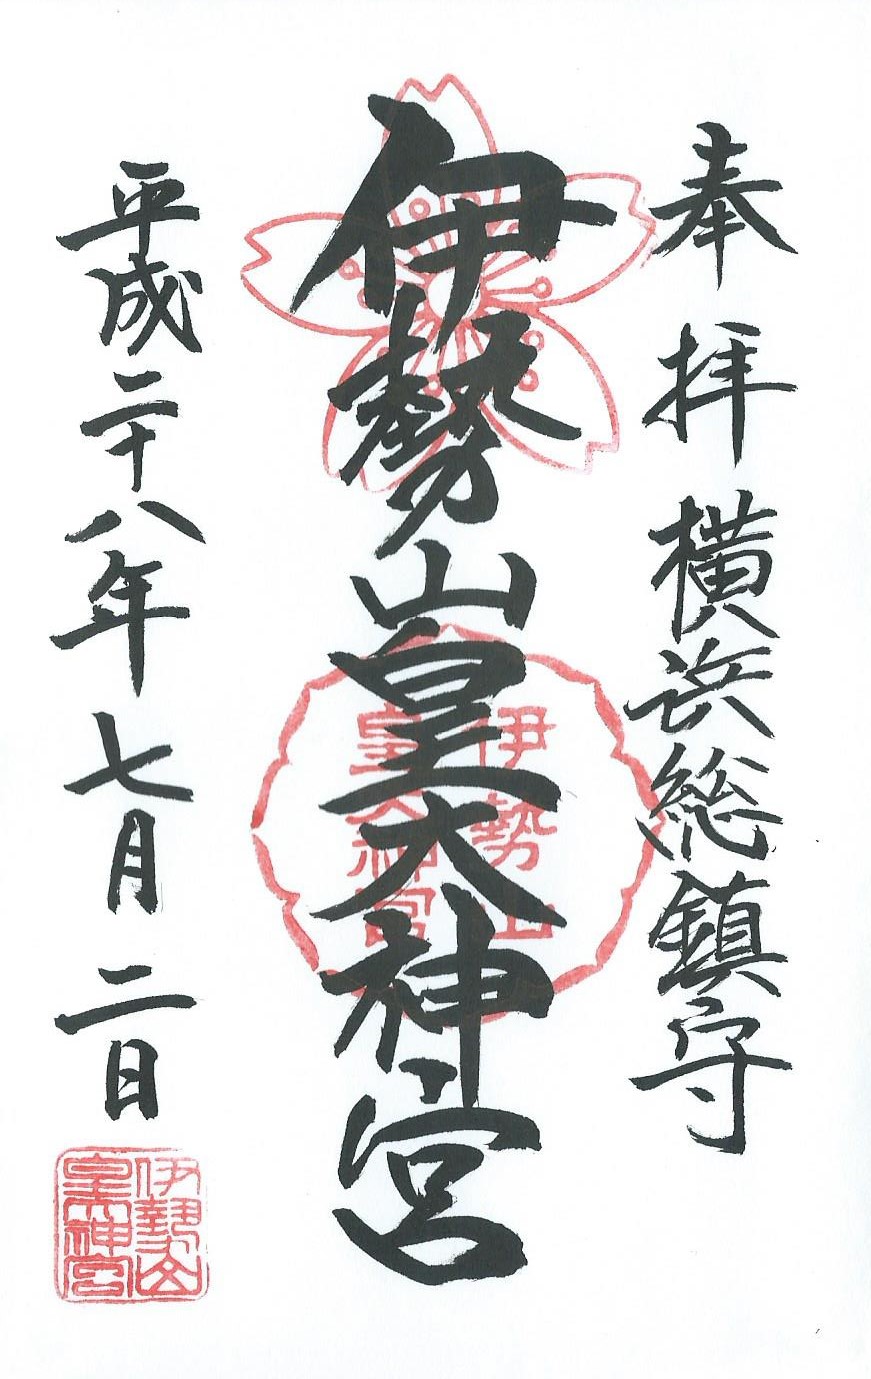 奉拝 横浜総鎮守
伊勢山皇大神宮
伊勢山
皇大神宮
平成二十八年七月二日
伊勢山
皇大神宮